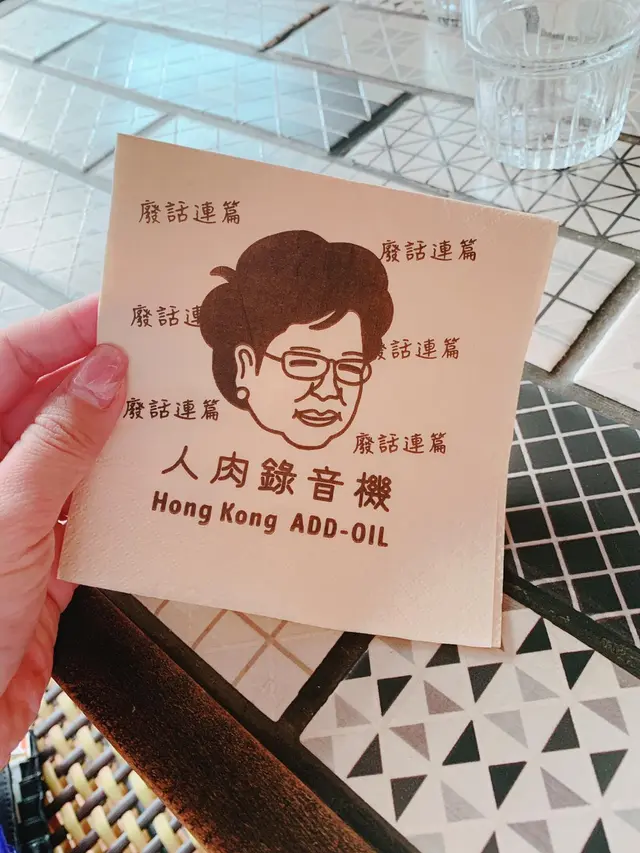 廢話連篇
廢話連篇
廢話連
話連篇
廢話連篇
廢話連篇
人肉錄音機
Hong Kong ADD-OIL